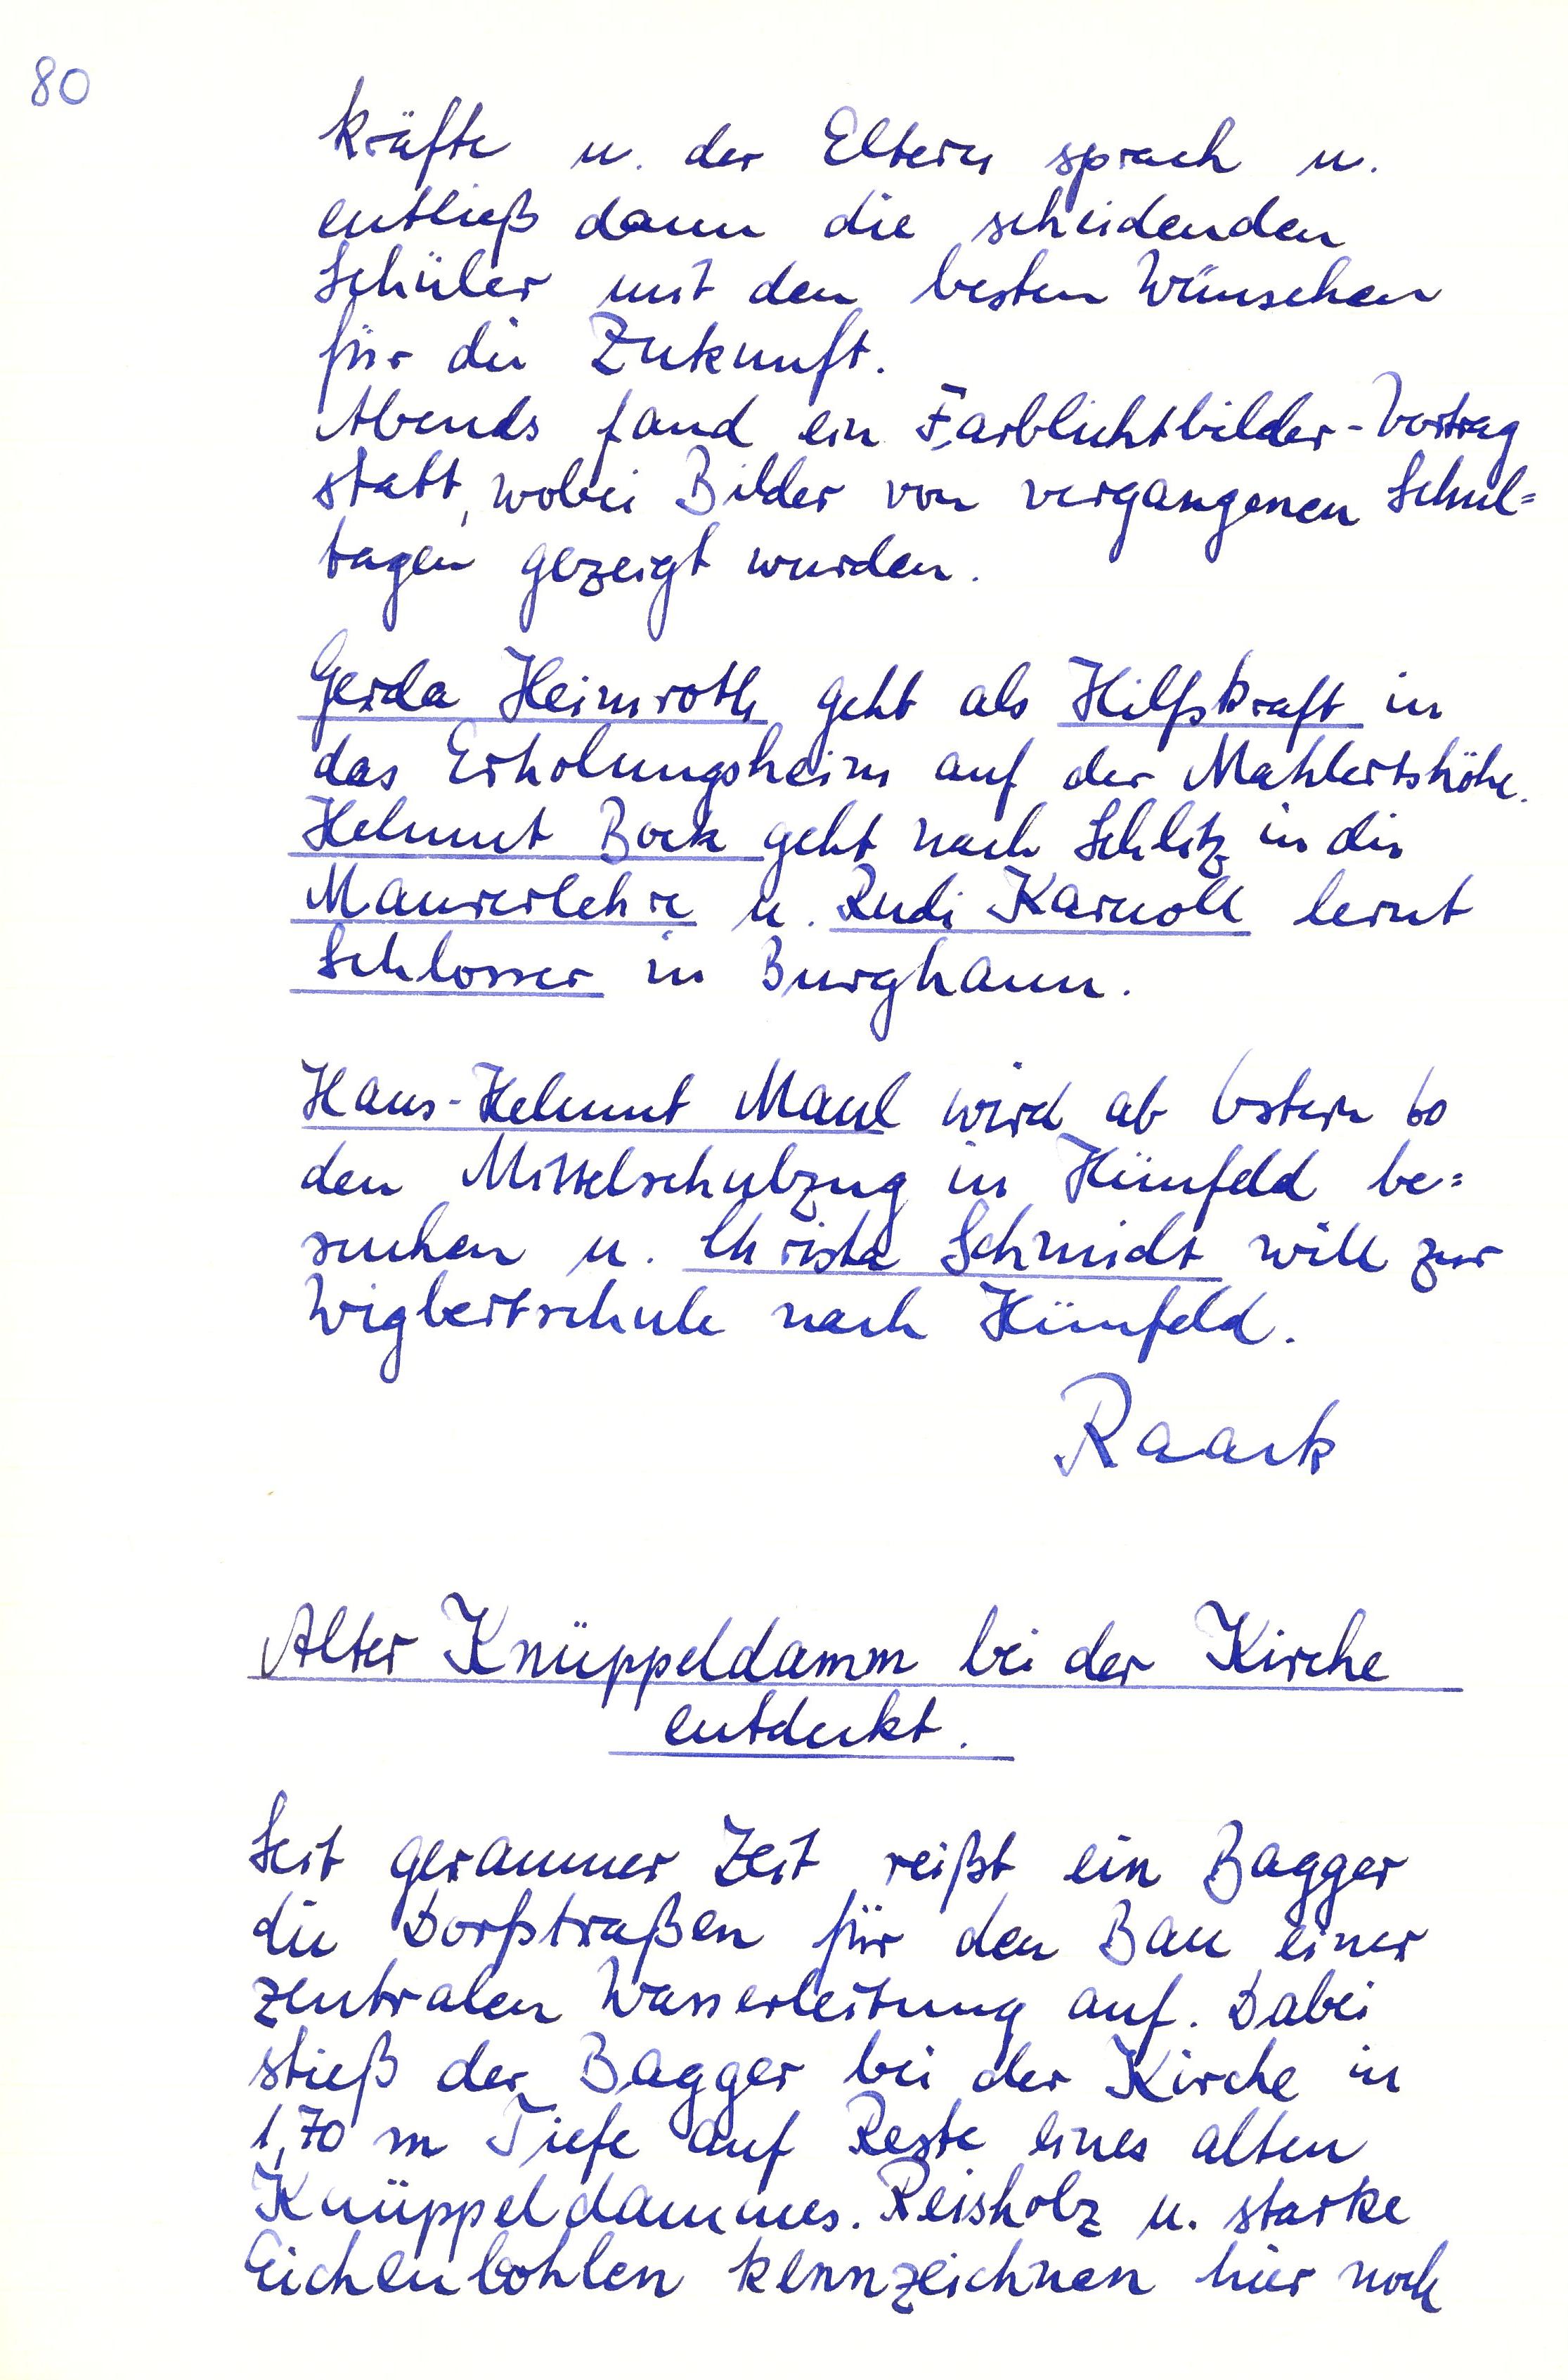 80
kräfte u. der Eltern sprach u.
entließ dann die scheidenden
Schüler mit den besten Wünschen
für die Zukunft.
Abends fand ein Farblichtbilder-Vortrag
statt, wobei Bilder von vergangenen Schul=
tagen gezeigt wurden.
Gerda Heimroth geht als Hilfskraft in
das Erholungsheim auf der Mahlertshöhe.
Helmut Bock geht nach Schlitz in die
Maurerlehre u. Rudi Karnoll lernt
Schlosser in Burghaun.
Hans-Helmut Maul wird ab Ostern 60
den Mittelschulzug in Hünfeld be=
suchen u. Christa Schmidt will zur
Wigbertschule nach Hünfeld.
Raack
Alter Knüppeldamm bei der Kirche
entdeckt.
Seit geraumer Zeit reißt ein Bagger
die Dorfstraßen für den Bau einer
zentralen Wasserleitung auf. Dabei
stieß der Bagger bei der Kirche in
1,70 m Tiefe auf Reste eines alten
Knüppeldammes. Reisholz u. starke
Eichenbohlen kennzeichnen hier noch